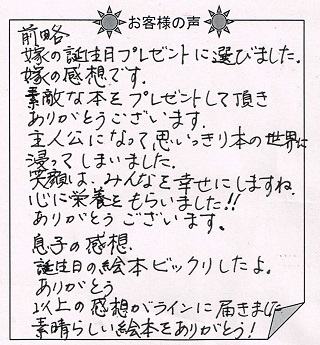 お客様の声
前略
嫁の誕生日プレゼントに選びました.
嫁の感想です.
素敵な本をプレゼントして頂き
ありがとうございます.
主人公になって思いっきり本の世界に
浸ってしまいました.
笑顔は、みんなを幸せにしますね.
心に栄養をもらいました!!
ありがとうございます。
息子の感想.
誕生日の絵本ビックリしたよ。
ありがとう
以上の感想がラインに届きました
素晴らしい絵本をありがとう!